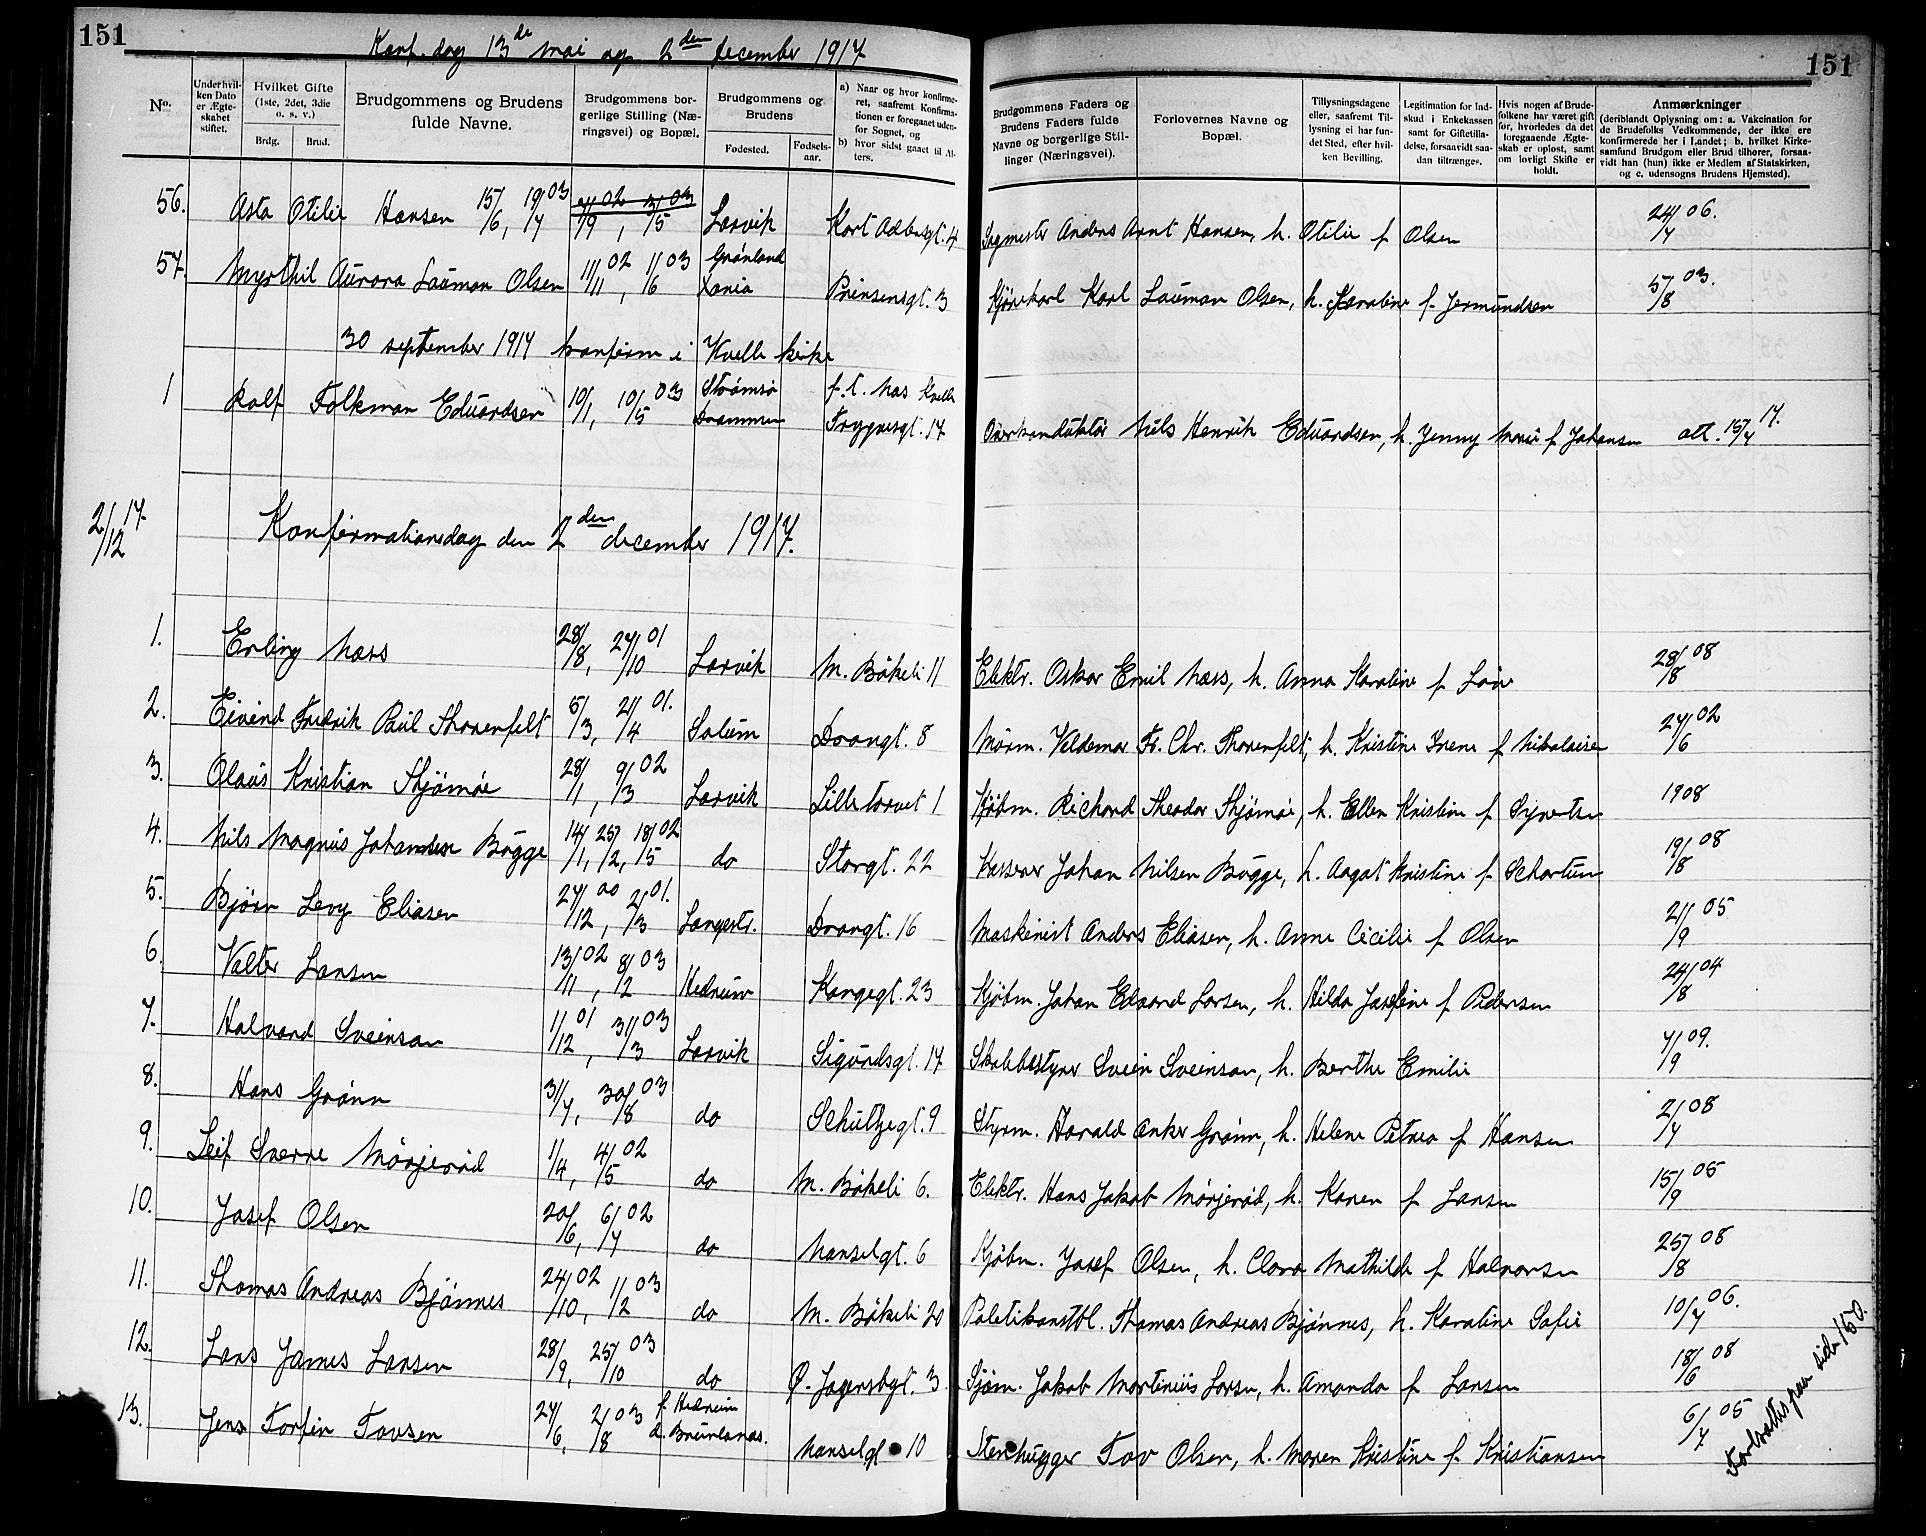 151
Konf. dag 13de mai og 2den december 1917
151
No.
Under hvilken Dato er Ægteskabet stiftet.
Hvilket Gifte (1ste, 2det, 3die o. s. v.)
Brdg.
Brud.
Brudgommens og Brudens fulde Navne.
Brudgommens borgerlige Stilling (Næringsvei) og Bopæl.
Brudgommens og Brudens
Fødested.
Fødselsaar.
a) Naar og hvor konfirmeret, saafremt Konfirmationen er foregaaet udenfor Sognet, og
b) hvor sidst gaaet til Alters.
Brudgommens Faders og Brudens Faders fulde Navne og borgerlige Stillinger (Næringsvei).
Forlovernes Navne og Bopæl.
Tillysningsdagene eller, saafremt Tillysning ei har fundet Sted, efter hvilken Bevilling.
Legitimation for Indskud i Enkekassen samt for Giftetilladelse, forsaavidt saadan tiltrænges.
Hvis nogen af Brudefolkene har været gift før, hvorledes da det foregaaende Ægteskab er opløst, samt om lovligt Skifte er holdt.
Anmærkninger
(deriblandt Oplysning om: a. Vakcination for de Brudefolks Vedkommende, der ikke ere konfirmerede her i Landet; b. hvilket Kirkesamfund Brudgom eller Brud tilhører, forsaavidt han (hun) ikke er Medlem af Statskirken, og c. udensogns Brudens Hjemsted).
56. Asta Otilie Hansen 15/6, 19/7 03 Larvik Kort Adelersgt. 4 Sagmester Anders Arnt Hansen, h. Otilie f Olsen 24/7 06.
57. Myrthil Aurora Lauman Olsen 11/11 02, 1/6 03 Grønland Xania Prinsensgt. 3 Kjørekarl Karl Lauman Olsen, h. Karoline f. Jermundsen 5/8 03.
30 september 1917 konfirm i Kvelle kirke
1 Rolf Folkman Eduardsen 10/1, 10/5 03 Strømsø Drammen f. t. Nas Kvelle Trygvesgt. 17 Overkonduktør Nils Henrik Eduardsen, h. Jenny Marie f Johansen att. 15/4 17.
2/12 17. Konfirmationsdag den 2den december 1917.
1. Erling Næss 28/8, 27/10 01 Larvik M. Bøkeli 11 Elektr. Oskar Emil Næss, h. Anna Karoline f Løve 28/8 08
2. Eivind Fredrik Paul Thorenfelt 5/3, 21/4 01. Solum Drangt. 8 Mørm. Valdemar Fr. Chr. Thorenfelt, h. Kristine Irene f Nikolaisen 27/6 02
3. Olaus Kristian Skjømøe 28/1, 9/3 02 Larvik Lilletorvet 1 Kjøbm. Richard Theodor Skjømøe, h. Ellen Kristine f Syvertsen 1908
4. Nils Magnus Johansen Bugge 14/1, 25/2, 18/5 02 do Storgt. 22 Kasserer Johan Nilsen Bugge, h. Aagot Kristine f Schartum 19/8 08
5. Bjørn Levy Eliasen 27/12 00, 2/3 01. Langestr. Drangt. 16 Maskinist Anders Eliasen, h. Anne Cicilie f Olsen 21/9 05
6. Valter Larsen 13/11 02, 8/2 03 Hedrum Kongegt. 23 Kjøbm. Johan Edvard Larsen, h. Hilda Josefine f Pedersen 24/8 04
7. Halvard Sveinsan 1/12 01, 31/3 03 Larvik Sigurdsgt. 17 Skolebestyrer Svein Sveinsan, h. Berthe Emilie 7/9 09.
8. Hans Grønn 31/7, 30/8 03 do Schultzegt. 9 Styrm. Harald Anker Grønn, h. Helene Petrea f Hansen 2/7 08
9. Leif Sverre Mørjerød 1/4, 4/5 02 do M. Bøkeli 6. Elektr. Hans Jakob Mørjerød, h. Karen f Larsen 15/9 05
10. Josef Olsen 20/6, 6/7 02 do Nanselgt. 6 Kjøbm. Josef Olsen, h. Clara Mathilde f Halvorsen 25/8 08
11. Thomas Andreas Bjønnes 24/10 02, 1/2 03 do M. Bøkeli 20 Politikonstbl. Thomas Andreas Bjønnes, h. Karoline Sofie 10/7 06.
12. Lars James Larsen 28/9, 25/10 03 do Ø. Jegersbgt. 3 Sjøm. Jakob Martinius Larsen, h. Amanda f Larsen 18/6 08
13. Jens Torfin Tovsen 27/6, 2/8 03 f. Hedrum d. Brunlanes. Nanselgt 10 Stenhugger Tov Olsen, h. Maren Kristine f. Kristiansen 6/7 05
Fortsættes paa side 150.